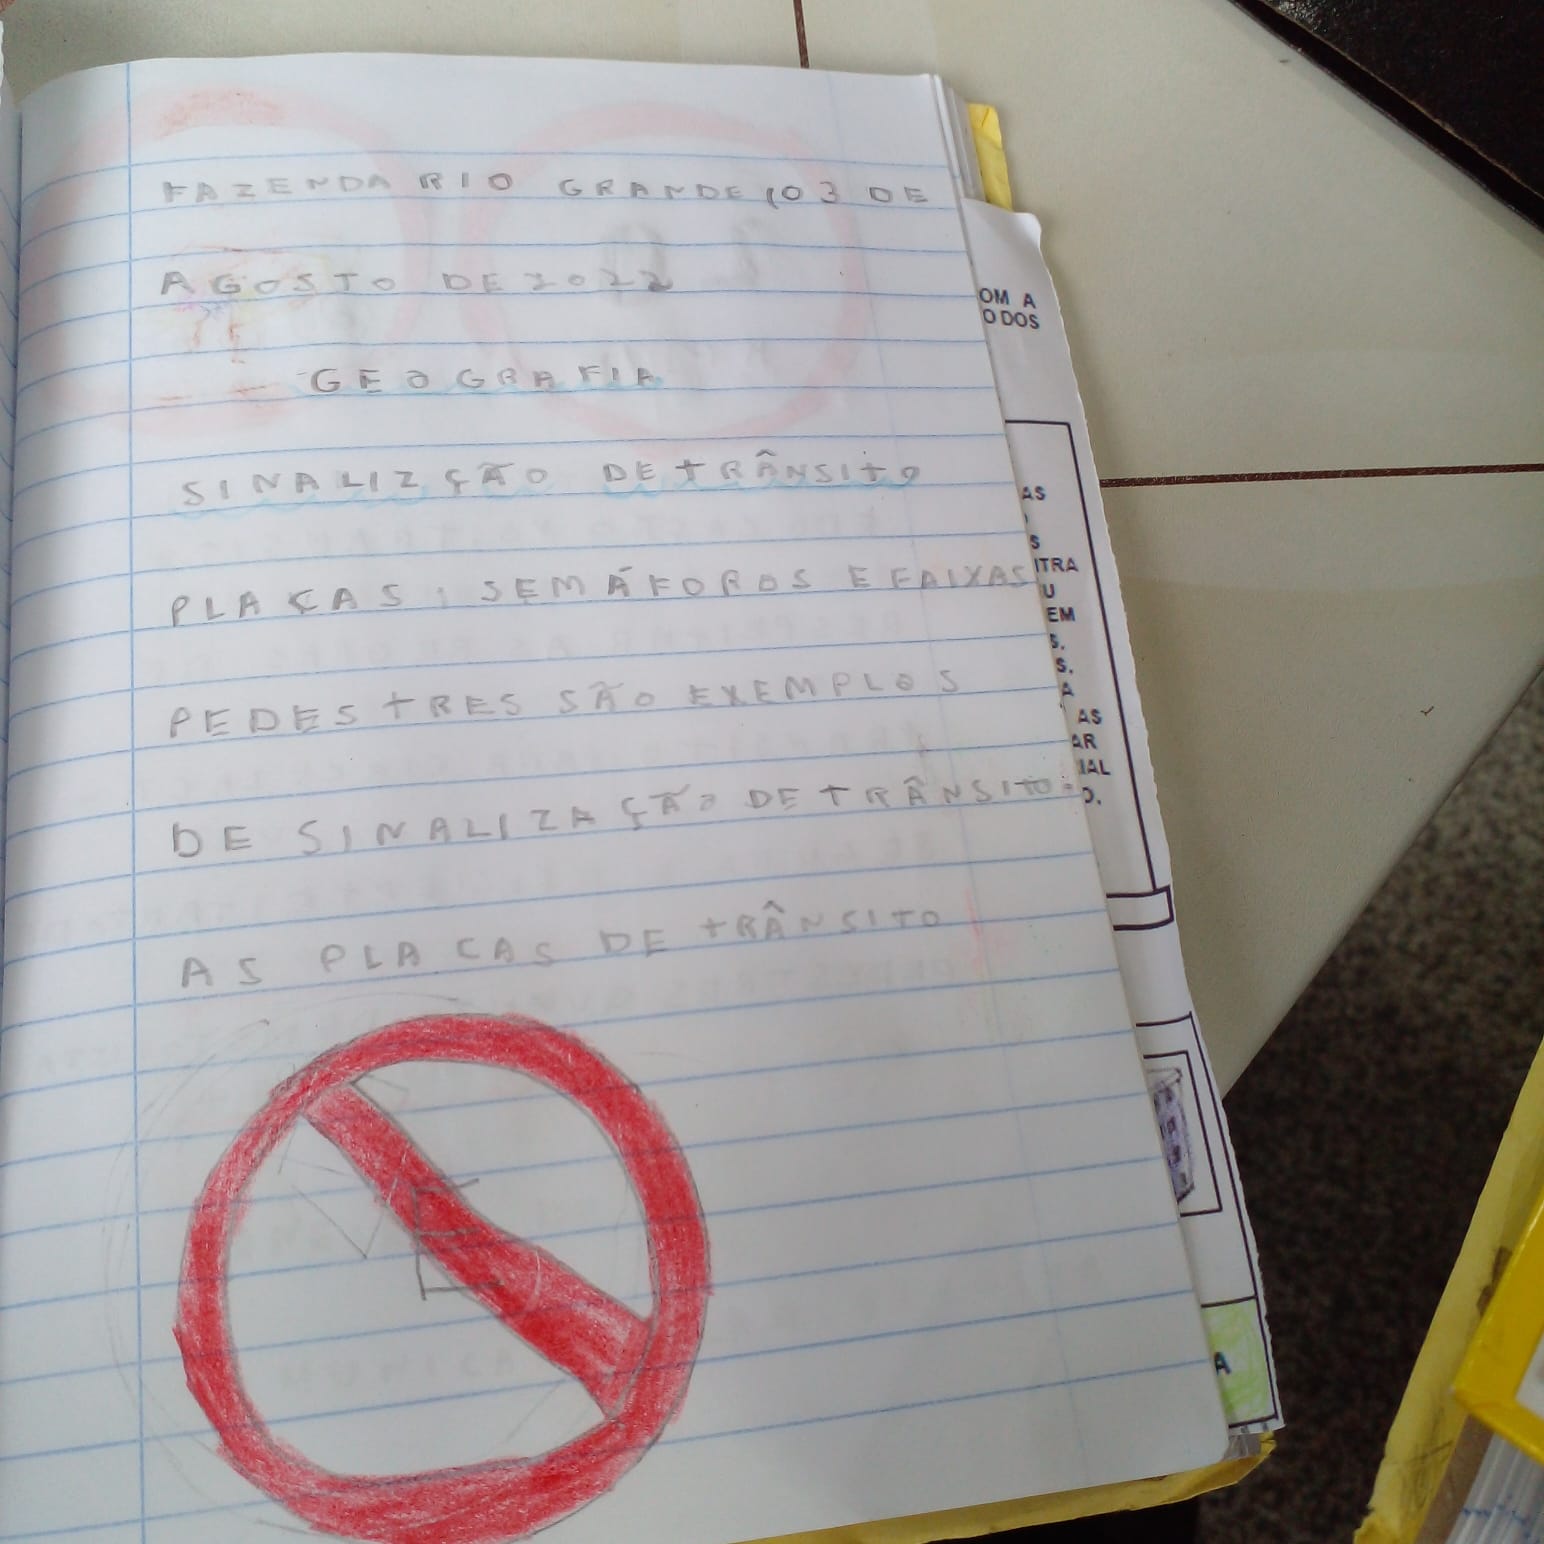 FAZENDA RIO GRANDE, 03 DE
AGOSTO DE 2022
GEOGRAFIA
SINALIZÇÃO DE TRÂNSITO
PLACAS, SEMÁFOROS E FAIXAS
PEDESTRES SÃO EXEMPLOS
DE SINALIZAÇÃO DE TRÂNSITO.
AS PLACAS DE TRÂNSITO
E
OM A
O DOS
AS
S
ITRA
U
EM
S.
S.
A
AS
AR
IAL
O.
A